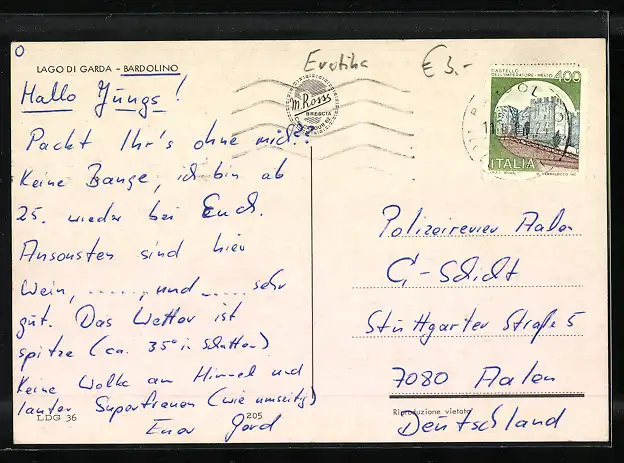 Erotika € 3.-
LAGO DI GARDA - BARDOLINO
Hallo Jungs!
Packt Ihr's ohne mich??
Keine Bange, ich bin ab
25. wieder bei Euch.
Ansonsten sind hier
Wein, ......, und ...... sehr
gut. Das Wetter ist
spitze (ca. 35° in Schatten)
Keine Wolke am Himmel und
lauter Superfrauen (wie umseitig)
Euer Gerd
LDG 36
205
m Rossi
BRESCIA
CASTELLO
DELL'IMPERATORE - PRATO 400
ITALIA
Polizeirevier Aalen
C-Schicht
Stuttgarter Straße 5
7080 Aalen
Deutschland
Riproduzione vietata